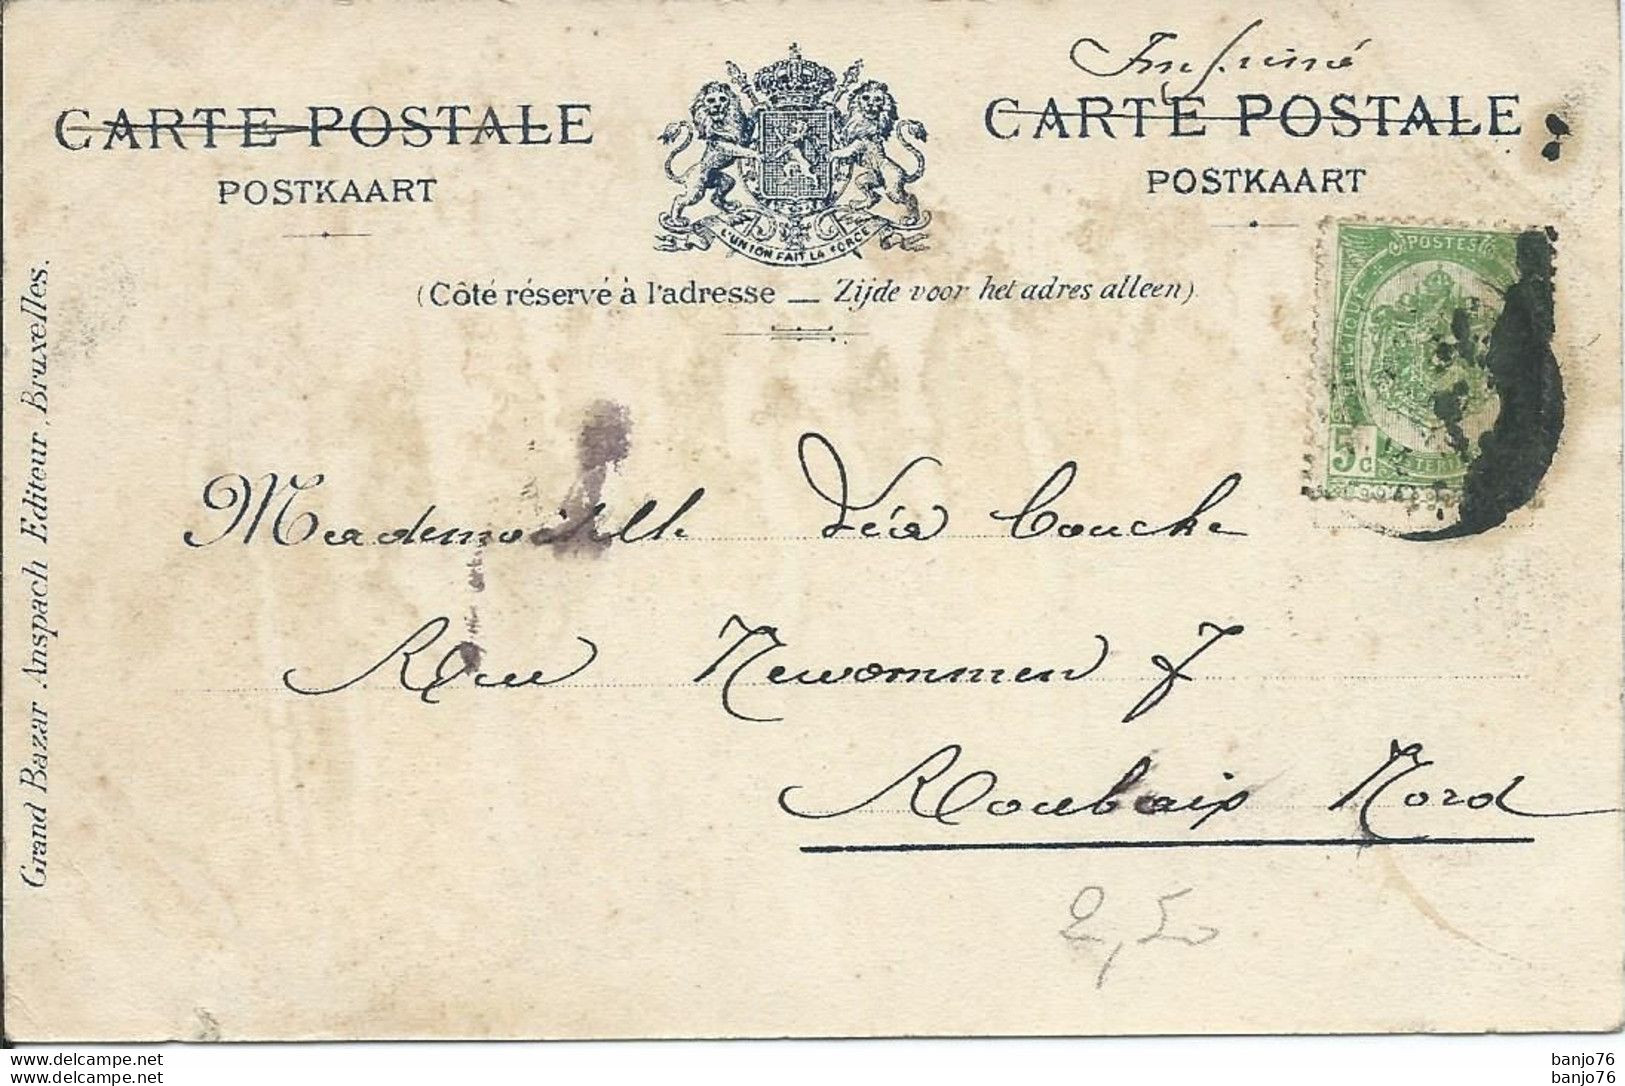 Imprimé
CARTE POSTALE
POSTKAART
CARTE POSTALE
POSTKAART
L'UNION FAIT LA FORCE
(Côté réservé à l'adresse — Zijde voor het adres alleen).
POSTES
BELGIQUE
5 c
Grand Bazar Anspach Editeur, Bruxelles.
Mademoiselle Léa Couche
Rue Newcommen 7
Roubaix Nord
2,50
www.delcampe.net
www.delcampe.net
banjo76
banjo76